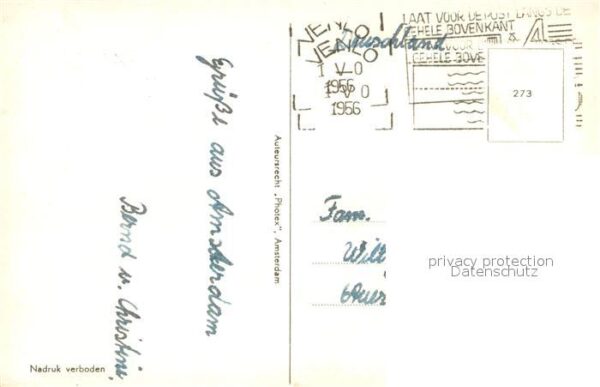 Grüße aus Amsterdam
Bernd u. Christine
Auteursrecht „Photex", Amsterdam
Nadruk verboden
VENLO
VENLO
1 V 0
1956
1 V 0
1956
LAAT VOOR DE POST LANGS DE
GEHELE BOVENKANT
VOOR
GEHELE BOVE
Deutschland
273
Fam.
Will
privacy protection
Datenschutz